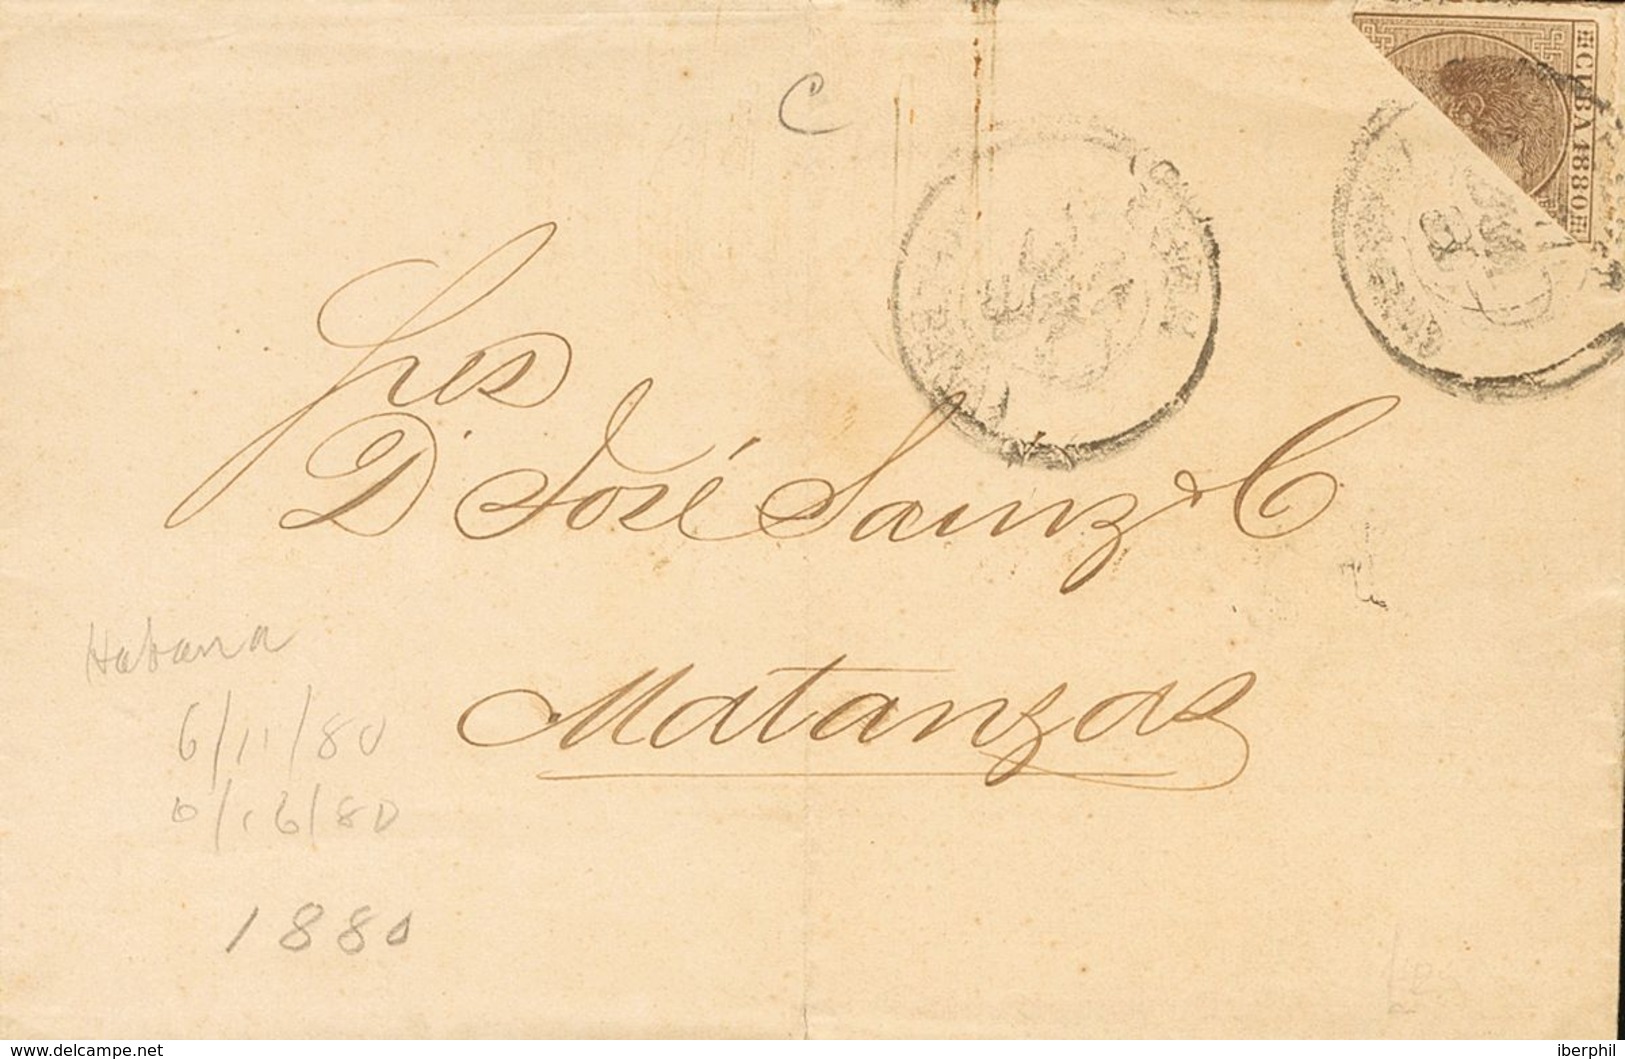 C
CUBA 1880
Sres
D. José Sainz & C
Matanzas
Habana
6/11/80
6/16/80
1880
www.delcampe.net
iberphil